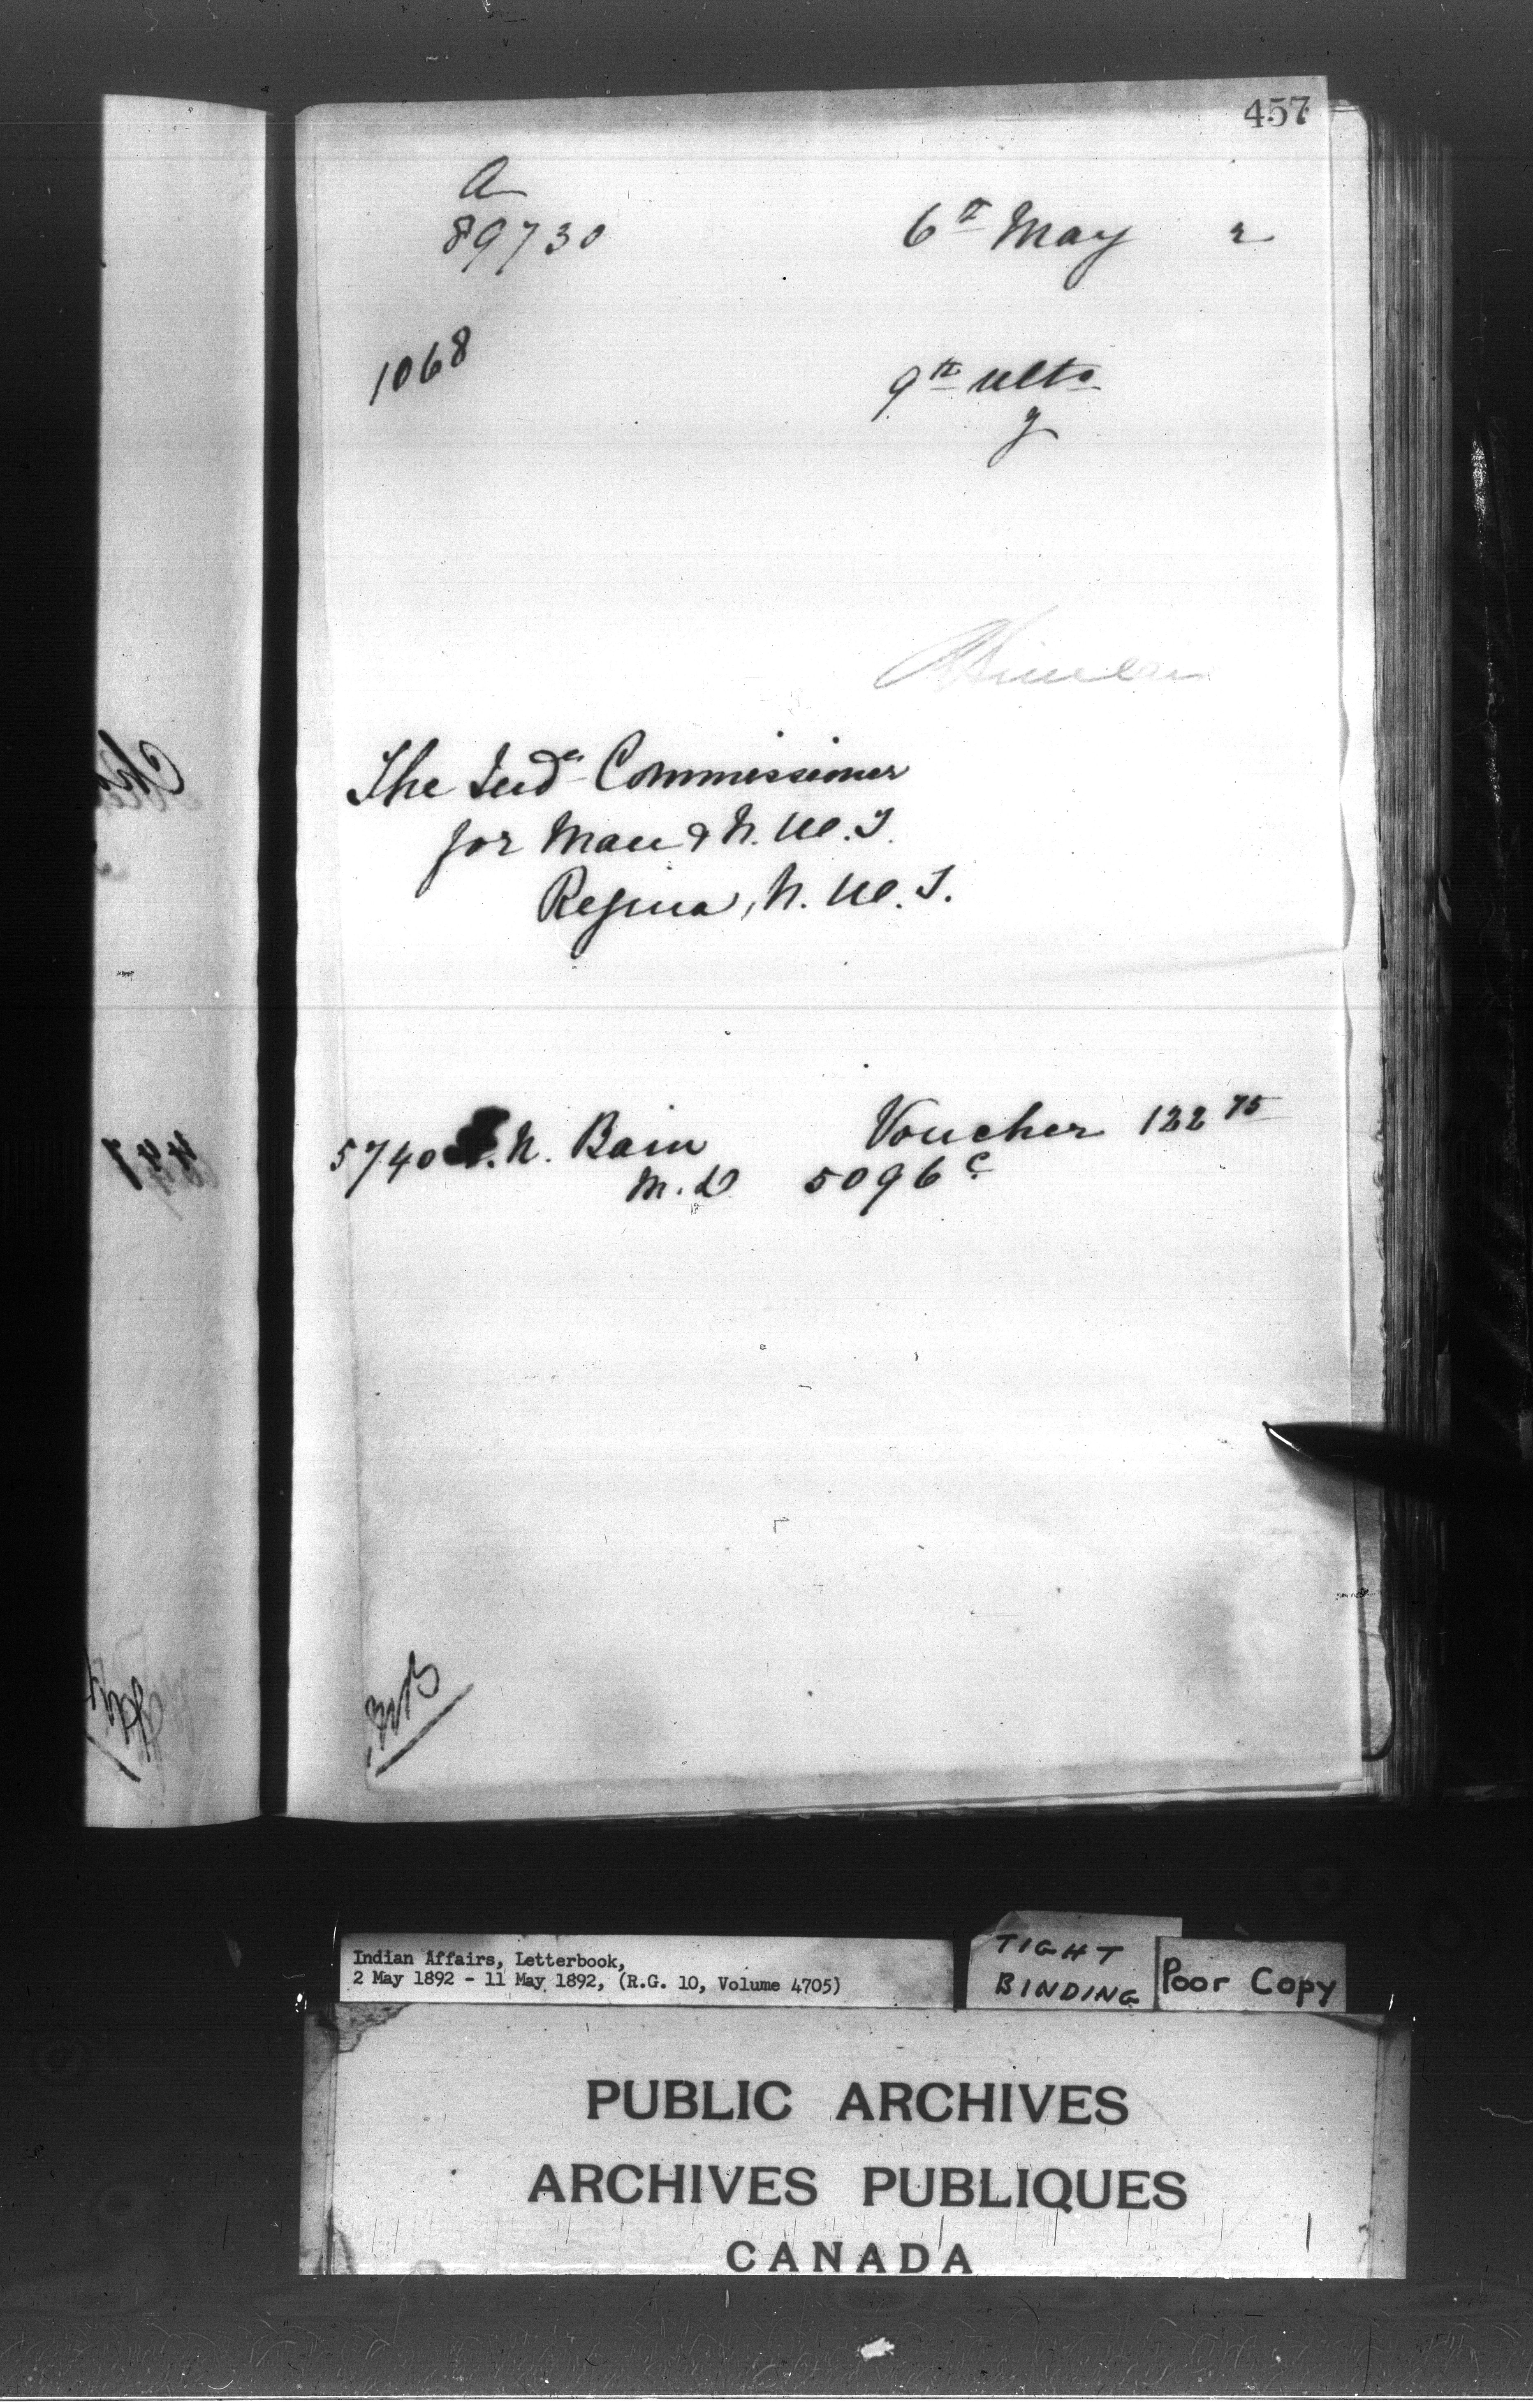 457
A
89730 6th May 2
1068
9th ulto
y
The Indn Commissioner
for Man & N.W.T.
Regina, N.W.T.
5740 N. Bain Voucher 122 75
M.D 5096 c
Indian Affairs, Letterbook,
2 May 1892 - 11 May 1892, (R.G. 10, Volume 4705)
TIGHT
BINDING
Poor Copy
PUBLIC ARCHIVES
ARCHIVES PUBLIQUES
CANADA